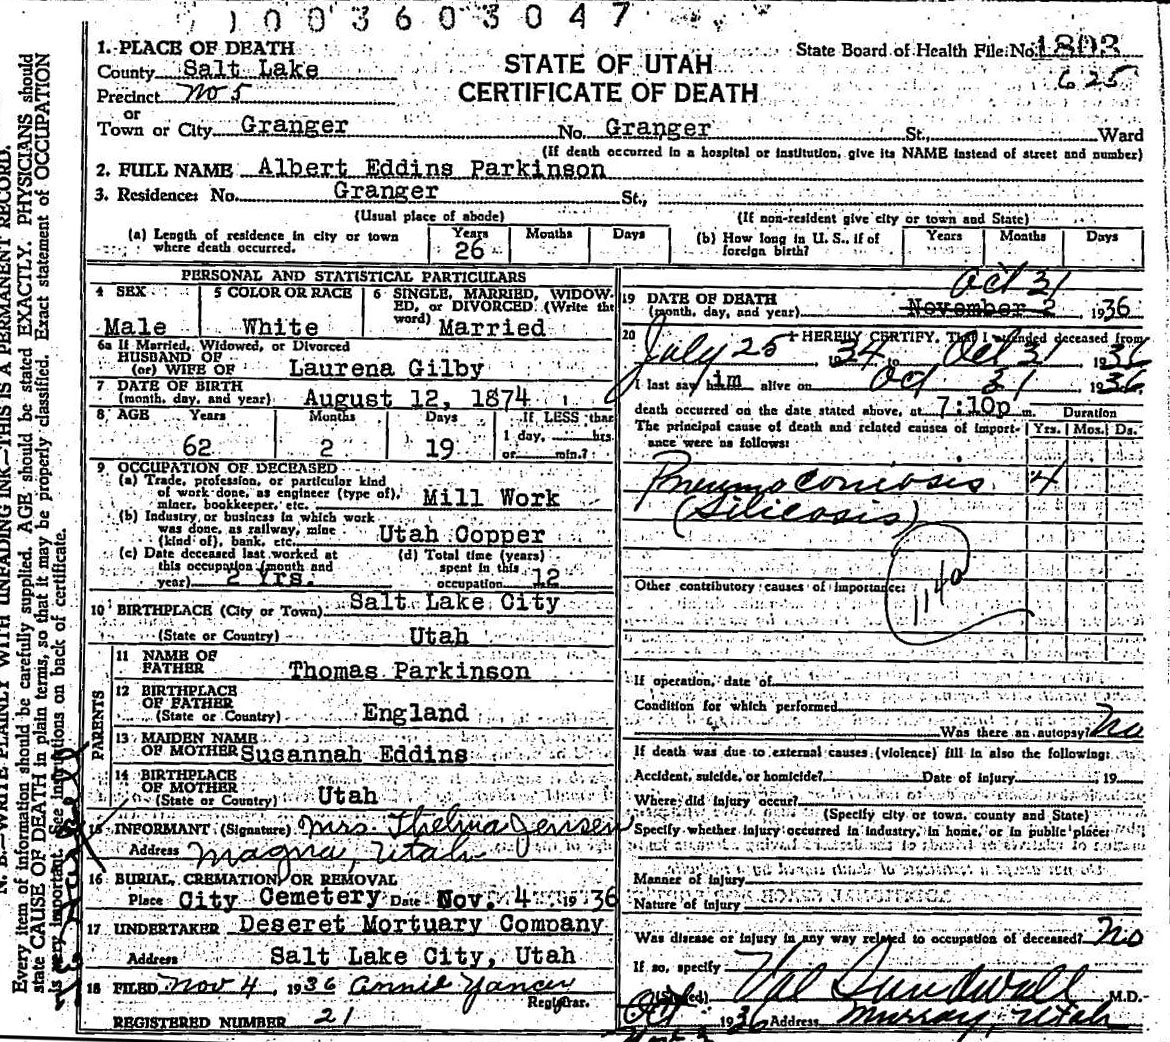 1003603047
1. PLACE OF DEATH
State Board of Health File No. 1803
County Salt Lake
STATE OF UTAH
625
Precinct No 5
CERTIFICATE OF DEATH
or
Town or City Granger No. Granger St. Ward
(If death occurred in a hospital or institution, give its NAME instead of street and number)
2. FULL NAME Albert Eddins Parkinson
3. Residence: No. Granger St.,
(Usual place of abode) (If non-resident give city or town and State)
(a) Length of residence in city or town where death occurred. Years 26 Months Days
(b) How long in U. S., if of foreign birth? Years Months Days
PERSONAL AND STATISTICAL PARTICULARS
4 SEX Male
5 COLOR OR RACE White
6 SINGLE, MARRIED, WIDOWED, or DIVORCED (Write the word) Married
6a If Married, Widowed, or Divorced
HUSBAND OF
(or) WIFE OF Laurena Gilby
7 DATE OF BIRTH
(month, day, and year) August 12, 1874
8 AGE Years 62 Months 2 Days 19 If LESS than 1 day, hrs. or min.?
9 OCCUPATION OF DECEASED
(a) Trade, profession, or particular kind
of work done, as engineer (type of),
miner, bookkeeper, etc. Mill Work
(b) Industry or business in which work
was done, as railway, mine
(kind of), bank, etc. Utah Copper
(c) Date deceased last worked at this occupation (month and year) 2 Yrs.
(d) Total time (years) spent in this occupation 12
10 BIRTHPLACE (City or Town) Salt Lake City
(State or Country) Utah
PARENTS
11 NAME OF FATHER Thomas Parkinson
12 BIRTHPLACE OF FATHER
(State or Country) England
13 MAIDEN NAME OF MOTHER Susannah Eddins
14 BIRTHPLACE OF MOTHER
(State or Country) Utah
15 INFORMANT (Signature) Mrs. Thelma Jensen
Address Magna, Utah
16 BURIAL, CREMATION, OR REMOVAL
Place City Cemetery Date Nov. 4 1936
17 UNDERTAKER Deseret Mortuary Company
Address Salt Lake City, Utah
18 FILED Nov 4, 1936 Annie Yancey
Registrar.
REGISTERED NUMBER 21
Oct 31
19 DATE OF DEATH
(month, day, and year) November 2, 1936
20 I HEREBY CERTIFY, That I attended deceased from
July 25 1934 to Oct 31 1936
I last saw him alive on Oct 31 1936
death occurred on the date stated above, at 7:10p m. Duration
The principal cause of death and related causes of importance were as follows: Yrs. Mos. Ds.
Pneumoconiosis 4
(Silicosis)
Other contributory causes of importance:
114a
If operation, date of
Condition for which performed
Was there an autopsy? No
If death was due to external causes (violence) fill in also the following:
Accident, suicide, or homicide? Date of injury 19
Where did injury occur?
(Specify city or town, county and State)
Specify whether injury occurred in industry, in home, or in public place:
Manner of injury
Nature of injury
Was disease or injury in any way related to occupation of deceased? No
If so, specify
(Signed) Val Sundwall M.D.
Oct 1936 Address Murray, Utah
N. B.—WRITE PLAINLY WITH UNFADING INK—THIS IS A PERMANENT RECORD.
Every item of information should be carefully supplied. AGE should be stated EXACTLY. PHYSICIANS should
state CAUSE OF DEATH in plain terms, so that it may be properly classified. Exact statement of OCCUPATION
is very important. See instructions on back of certificate.